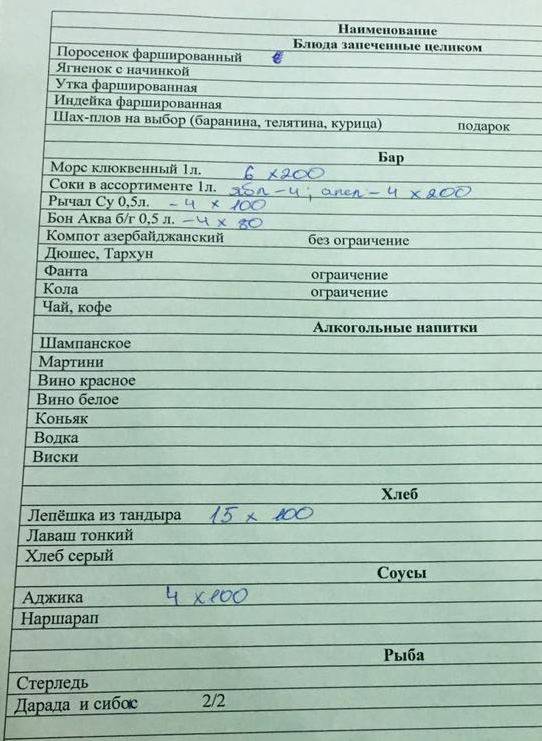 Наименование
Блюда запеченные целиком
Поросенок фаршированный
Ягненок с начинкой
Утка фаршированная
Индейка фаршированная
Шах-плов на выбор (баранина, телятина, курица) подарок
Бар
Морс клюквенный 1л. 6 х 200
Соки в ассортименте 1л. ябл – 4 ; апел – 4 х 200
Рычал Су 0,5л. – 4 х 100
Бон Аква б/г 0,5 л. – 4 х 80
Компот азербайджанский без ограичение
Дюшес, Тархун
Фанта ограичение
Кола ограичение
Чай, кофе
Алкогольные напитки
Шампанское
Мартини
Вино красное
Вино белое
Коньяк
Водка
Виски
Хлеб
Лепёшка из тандыра 15 х 100
Лаваш тонкий
Хлеб серый
Соусы
Аджика 4 х 100
Наршарап
Рыба
Стерледь
Дарада и сибос 2/2